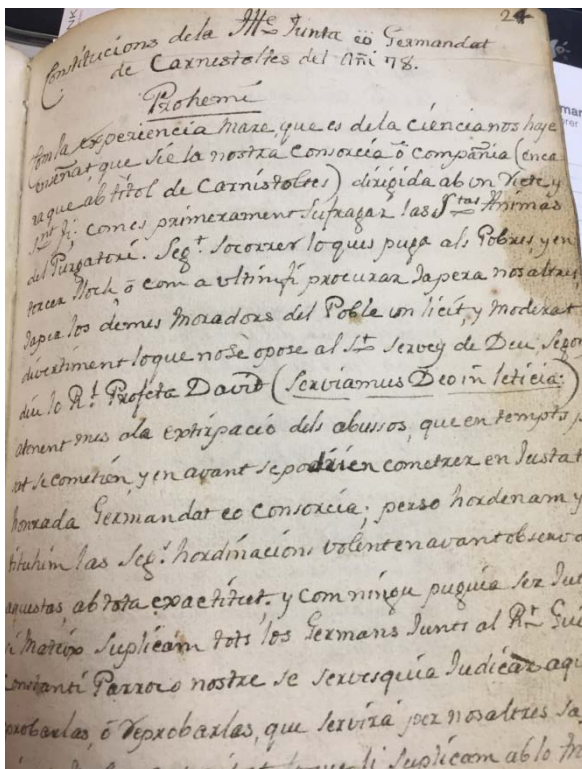 24
Constitucions dela Itte Junta eo Germandat
de Carnestoltes del Añi 78.
Prohemi
Com la experiencia Mare, que es dela ciencia nos haje
ensenat, que sie la nostra Consorcia ó compañia (enca
ra que ab titol de Carnistoltes) dirigida ab un Recte, y
Snt fi: com es primerament sufragar las Stas Animas
del Purgatori. Segt. socorrer lo ques puga als Pobres, y en
tercer lloch ó com a ultim fi procurar Japera nosaltres,
Japera los demes Moradors del Poble un licit, y moderat
divertiment lo que no se opose al St servey de Deu, segon
diu lo Rl Profeta David (serviamus Deo in leticia:)
atenent mes ala extirpació dels abussos, que en temps p
sat se cometien, y en avant se podrien cometrer en Justa
honrada Germandat eo Consorcia; perso hordenam y
tituhim las Segt. hordinacions volent en avant observo
aquestas, ab tota exactitut. y com ningu puguia ser Jut
i Mateix suplicam tots los Germans Junts al Rt Gui
Constanti Parroco nostre se servesquia Judicar aqu
probarlas, ó reprobarlas, que servirá per nosaltres sa
li suplicam ab lo